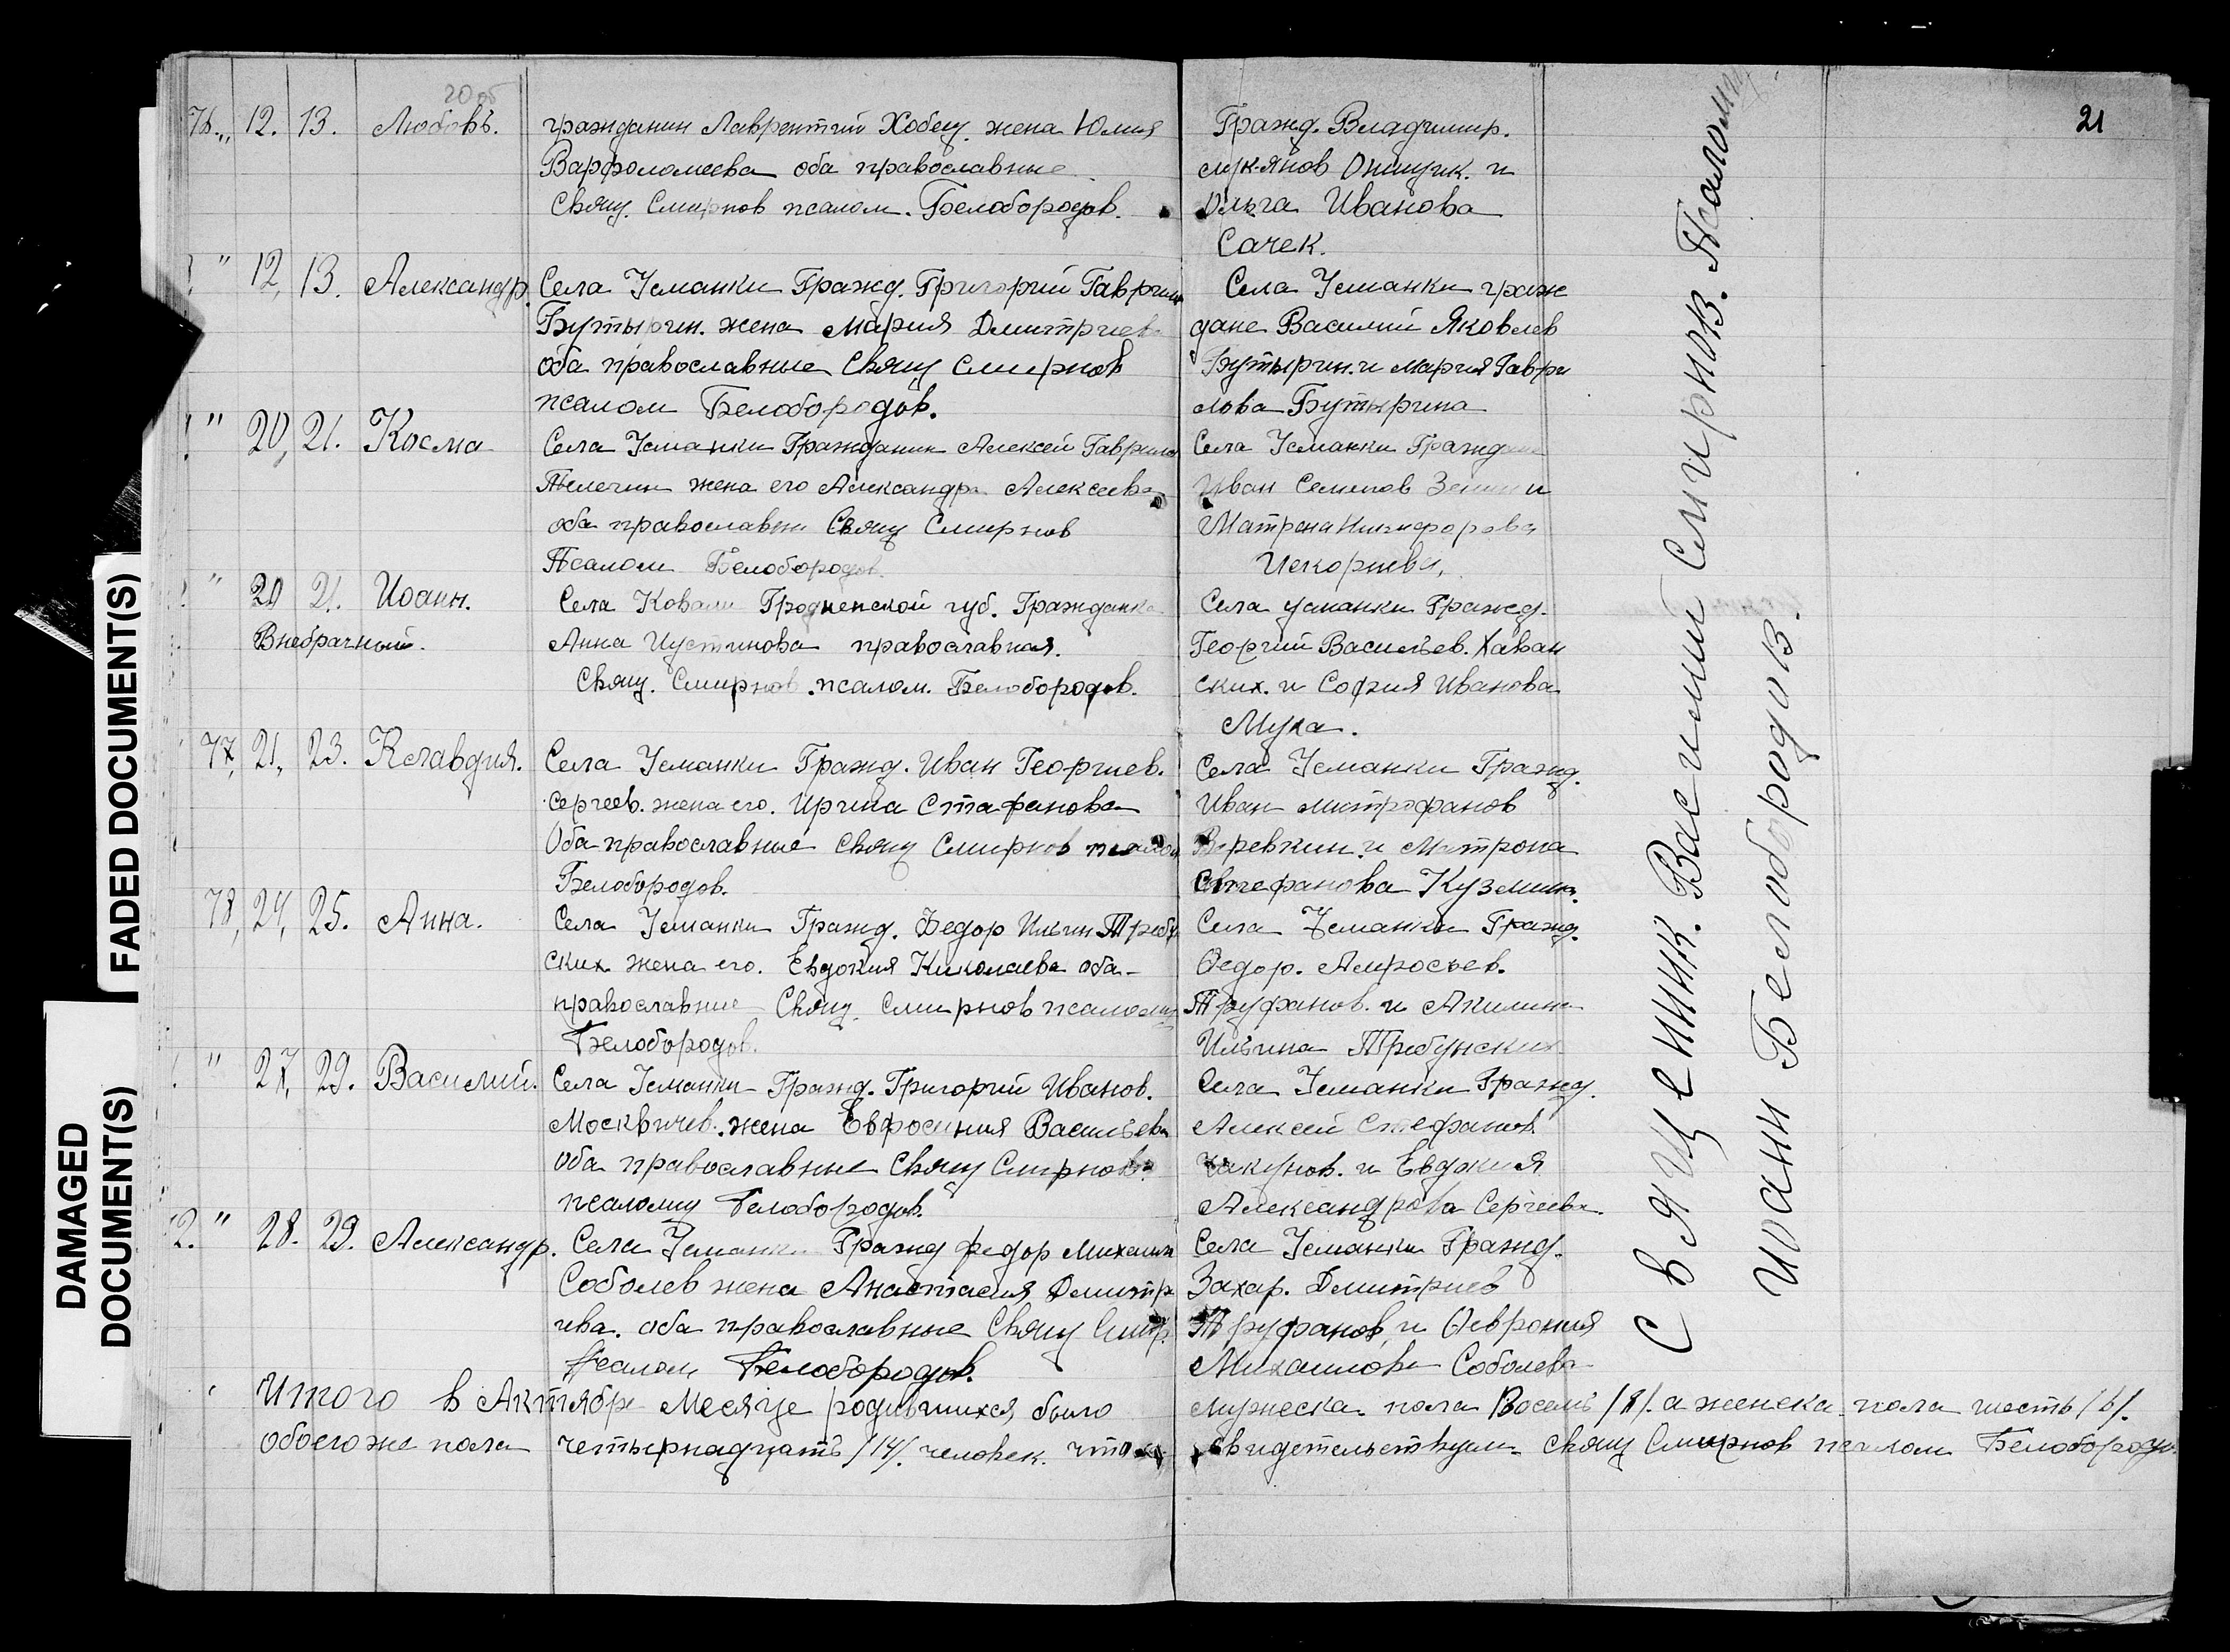 20 об
21
76. „ 12. 13. Любовь. гражданин Лаврентий Хобец жена Юлия
Варфоломеева оба православные
Свящ. Смирнов псалом. Белобородов.
Гражд. Владимир.
Лукянов Онищук. и
Ольга Иванова
Сачек.
" 12, 13. Александр. Села Усманки Гражд. Григорий Гаврилов
Бутырин. жена Мария Дмитриева
оба православные Свящ Смирнов
псалом Белобородов.
Села Усманки граж
дане Василий Яковлев
Бутырин. и Мария Гаври
лова Бутырина
" 20, 21. Косма Села Усманки Гражданин Алексей Гаврилов
жена его Александра Алексеева
оба православны Свящ Смирнов
Псалом Белобородов.
Села Усманки Граждане
Иван Семенов и
Матрена Никифорова
" 20 21. Иоанн. Села Ковали Гродненской губ. Гражданка
Внебрачный. Анна Иустинова православная.
Свящ. Смирнов. псалом. Белобородов.
Села усманки Гражд.
Георгий Васильев. Хаван
ских. и София Иванова
Муха.
77, 21, 23. Клавдия. Села Усманки Гражд. Иван Георгиев.
Сергеев. жена его. Ирина Стафанова
Оба православные Свящ Смирнов псалом
Белобородов.
Села Усманки Гражд.
Иван Митрофанов
Веревкин. и Матрона
Стефанова Кузмина.
78, 24, 25. Анна. Села Усманки Гражд. Федор Ильин Требун
ских. жена его. Евдокия Николаева оба
православные Свящ. Смирнов псаломщ
Белобородов.
Села Усманки Гражд.
Ѳедор. Амросьев.
Труфанов. и Акилина
Ильина Требунских
" 27, 29. Василий. Села Усманки Гражд. Григорий Иванов.
Москвичев. жена Евфосиния Васильева
оба православные Свящ Смирнов
псаломщ Белобородов.
Села Усманки Гражд.
Алексей Стефанов
и Евдокия
Александрова Сергеева
2. " 28. 29. Александр. Села Усманки Гражд федор Михаилов
Соболев жена Анастасия Дмитр
иева. оба православные Свящ Смир.
Псалом Белобородов.
Села Усманки Гражд.
Захар. Дмитриев
Труфанов и Ѳеврония
Михаилова Соболева
Итого в Актябре Месяце родившихся было мужеска. пола Восемь /8/. а женска. пола шесть /6/.
обоего же пола четырнадцать /14/. человек. что свидетельствуем Свящ Смирнов псалом Белобородов.
Священник. Василий Смирнов. Псаломщ
Иоанн Белобородов.
FADED DOCUMENT(S)
DAMAGED
DOCUMENT(S)